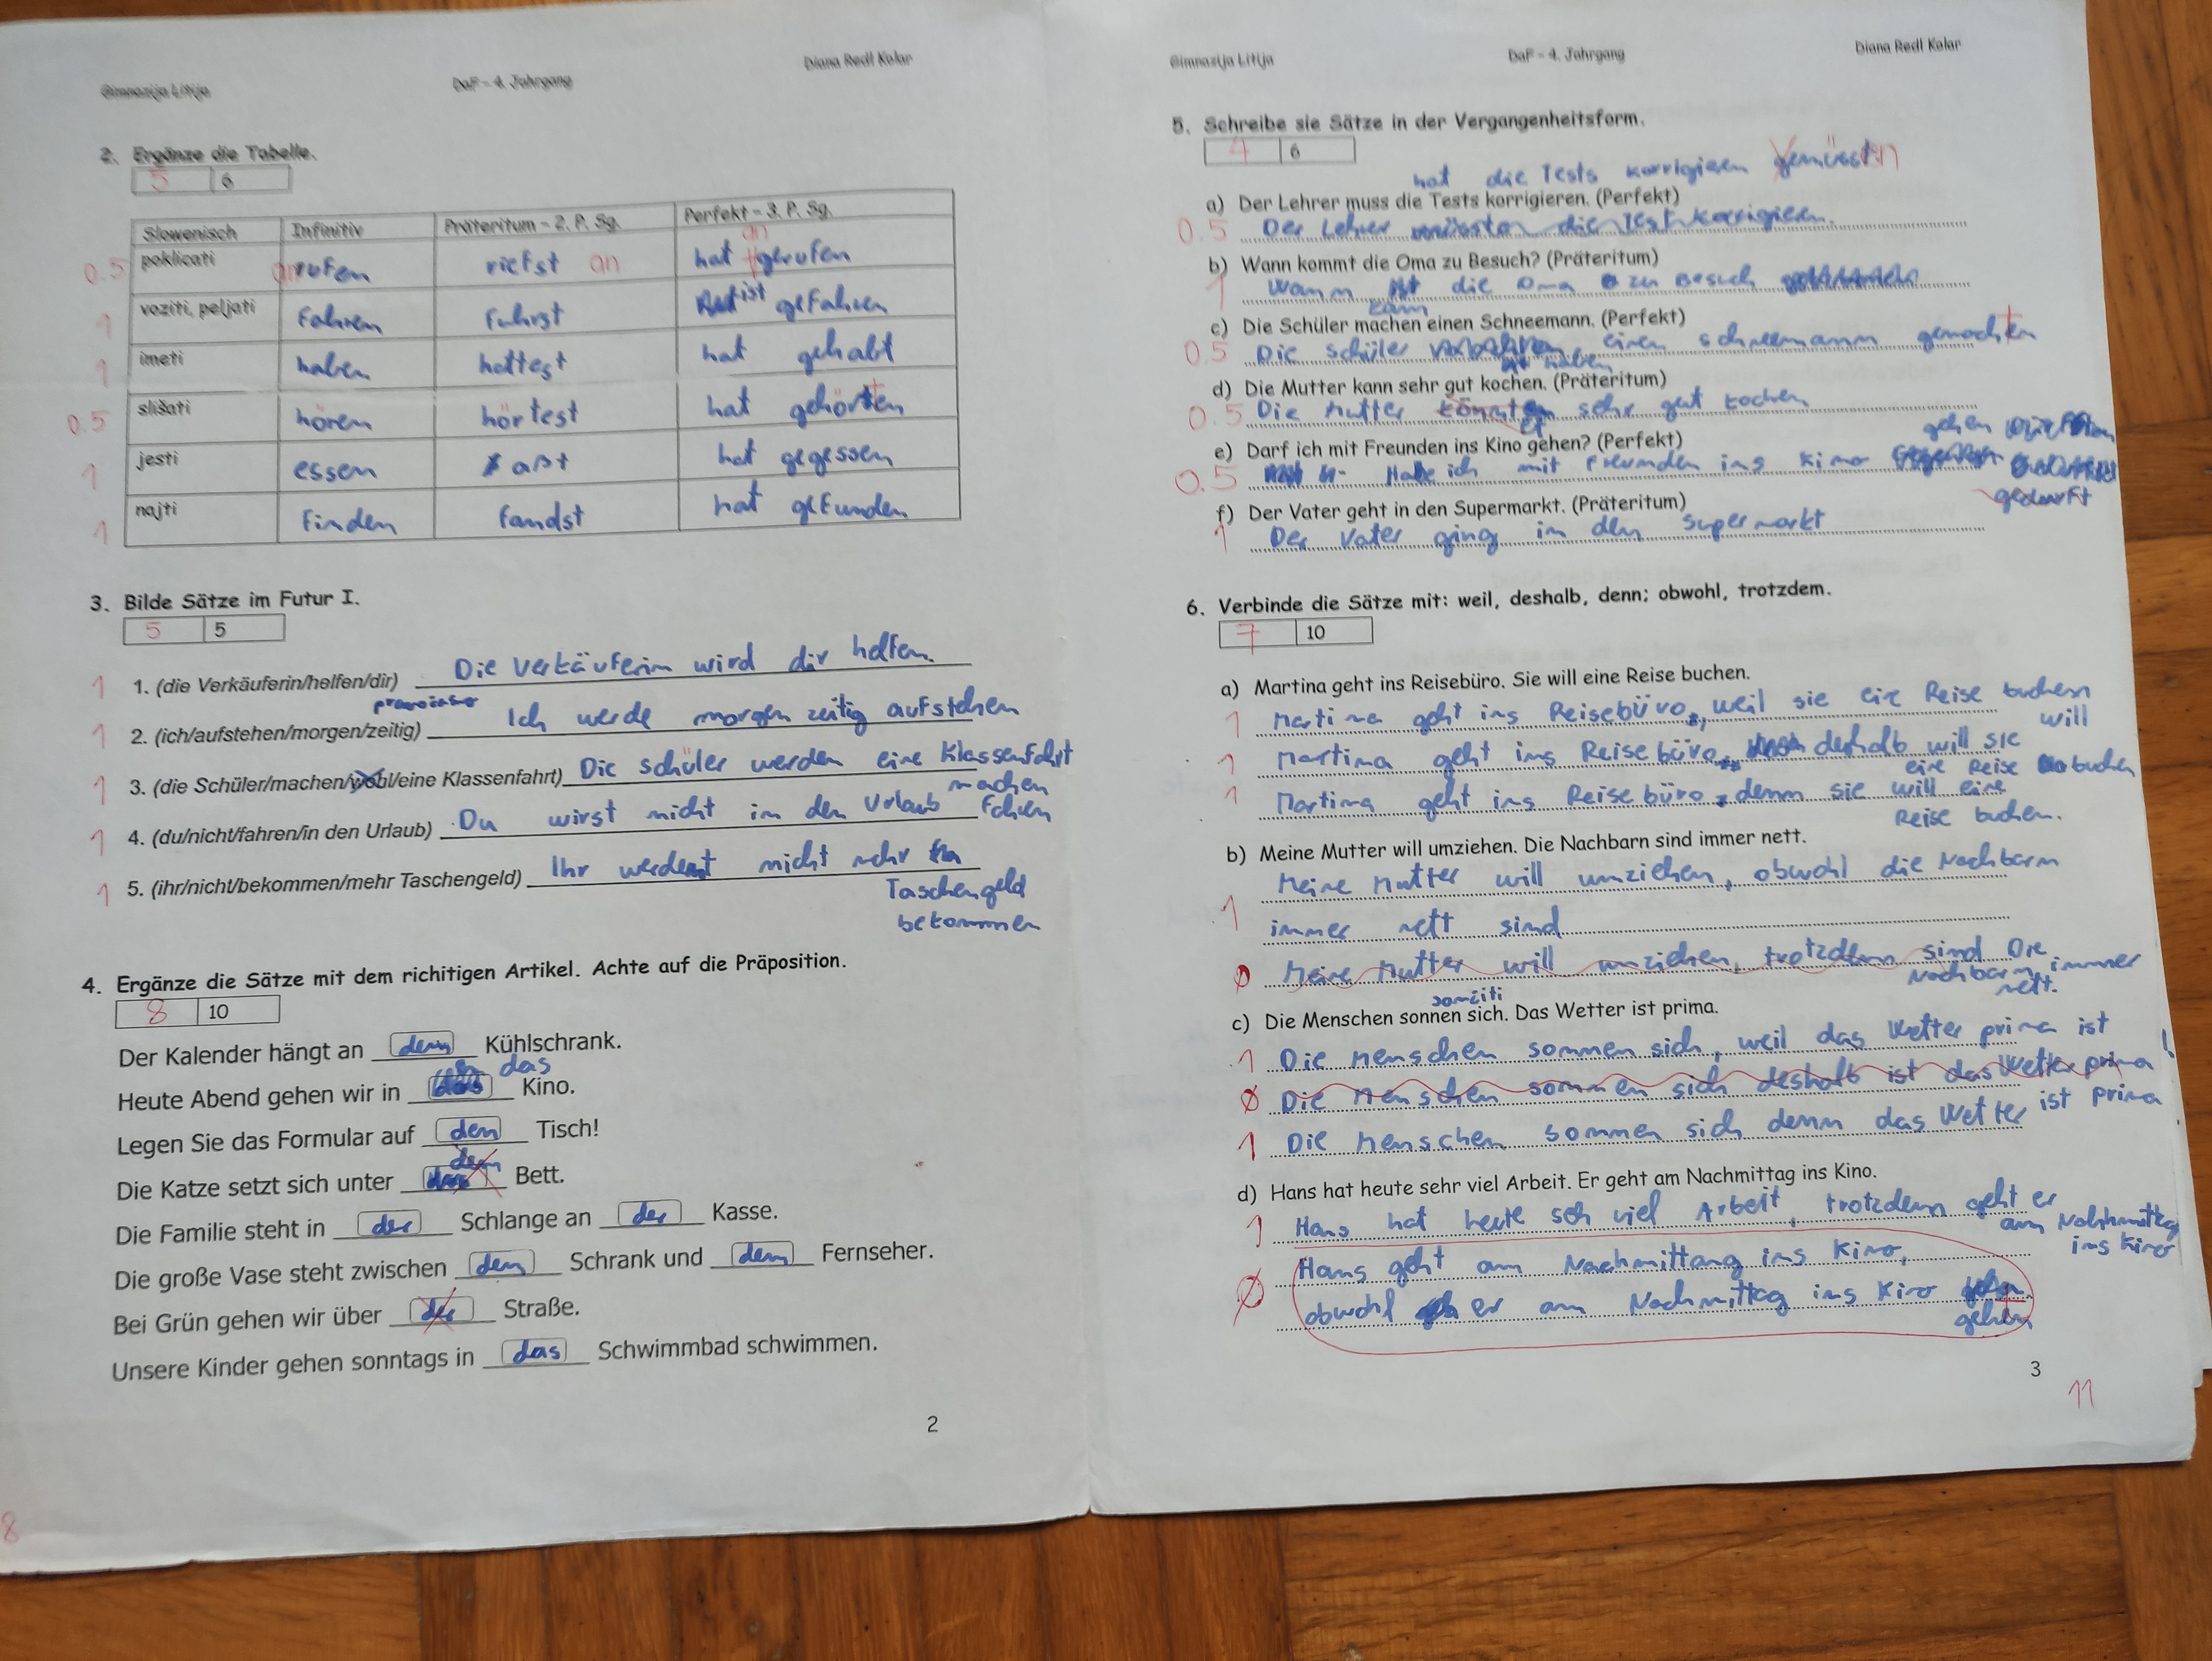 Gimnazija Litija DaF - 4. Jahrgang Diana Redl Kolar
2. Ergänze die Tabelle.
5 6
Slowenisch Infinitiv Präteritum - 2. P. Sg. Perfekt - 3. P. Sg.
0.5 poklicati an rufen riefst an hat an gerufen
1 voziti, peljati fahren fuhrst ist gefahren
1 imeti haben hattest hat gehabt
0.5 slišati hören hörtest hat gehörten
1 jesti essen aßt hat gegessen
1 najti finden fandst hat gefunden
3. Bilde Sätze im Futur I.
5 5
1 1. (die Verkäuferin/helfen/dir) Die Verkäuferin wird dir helfen.
1 2. (ich/aufstehen/morgen/zeitig) Ich werde morgen zeitig aufstehen
1 3. (die Schüler/machen/wohl/eine Klassenfahrt) Die schüler werden eine Klassenfahrt
machen
1 4. (du/nicht/fahren/in den Urlaub) Du wirst nicht in den Urlaub fahren
1 5. (ihr/nicht/bekommen/mehr Taschengeld) Ihr werdet nicht mehr
Taschengeld
bekommen
4. Ergänze die Sätze mit dem richitigen Artikel. Achte auf die Präposition.
8 10
Der Kalender hängt an dem Kühlschrank.
das
Heute Abend gehen wir in Kino.
Legen Sie das Formular auf den Tisch!
dem
Die Katze setzt sich unter Bett.
Die Familie steht in der Schlange an der Kasse.
Die große Vase steht zwischen dem Schrank und dem Fernseher.
Bei Grün gehen wir über der Straße.
Unsere Kinder gehen sonntags in das Schwimmbad schwimmen.
2
8
Gimnazija Litija DaF - 4. Jahrgang Diana Redl Kolar
5. Schreibe sie Sätze in der Vergangenheitsform.
4 6
hat die Tests korrigieren
a) Der Lehrer muss die Tests korrigieren. (Perfekt)
0.5 Der Lehrer müssten die Test korrigieren.
b) Wann kommt die Oma zu Besuch? (Präteritum)
1 Wann die Oma zu Besuch
kam
c) Die Schüler machen einen Schneemann. (Perfekt)
0.5 Die schüler einen schneemann gemachten
haben
d) Die Mutter kann sehr gut kochen. (Präteritum)
0.5 Die Mutter könnte sehr gut kochen
e) Darf ich mit Freunden ins Kino gehen? (Perfekt)
gehen
0.5 Habe ich mit Freunden ins Kino
gedurft
f) Der Vater geht in den Supermarkt. (Präteritum)
1 Der Vater ging in den Supermarkt
6. Verbinde die Sätze mit: weil, deshalb, denn; obwohl, trotzdem.
7 10
a) Martina geht ins Reisebüro. Sie will eine Reise buchen.
1 Martina geht ins Reisebüro, weil sie eine Reise buchen
will
1 Martina geht ins Reisebüro, deshalb will sie
eine Reise buchen
1 Martina geht ins Reisebüro, denn sie will eine
Reise buchen.
b) Meine Mutter will umziehen. Die Nachbarn sind immer nett.
Meine Mutter will umziehen, obwohl die Nachbarn
1 immer nett sind
0 Meine Mutter will umziehen, trotzdem sind Die
Nachbarn immer
nett.
c) Die Menschen sonnen sich. Das Wetter ist prima.
1 Die Menschen sonnen sich, weil das Wetter prima ist
0 Die Menschen sonnen sich deshalb ist das Wetter prima !
1 Die Menschen sonnen sich denn das Wetter ist prima
d) Hans hat heute sehr viel Arbeit. Er geht am Nachmittag ins Kino.
1 Hans hat heute seh viel Arbeit, trotzdem geht er
am Nachmittag
ins Kino
0 Hans geht am Nachmittang ins Kino,
obwohl er am Nachmittag ins Kino
gehen
3
11